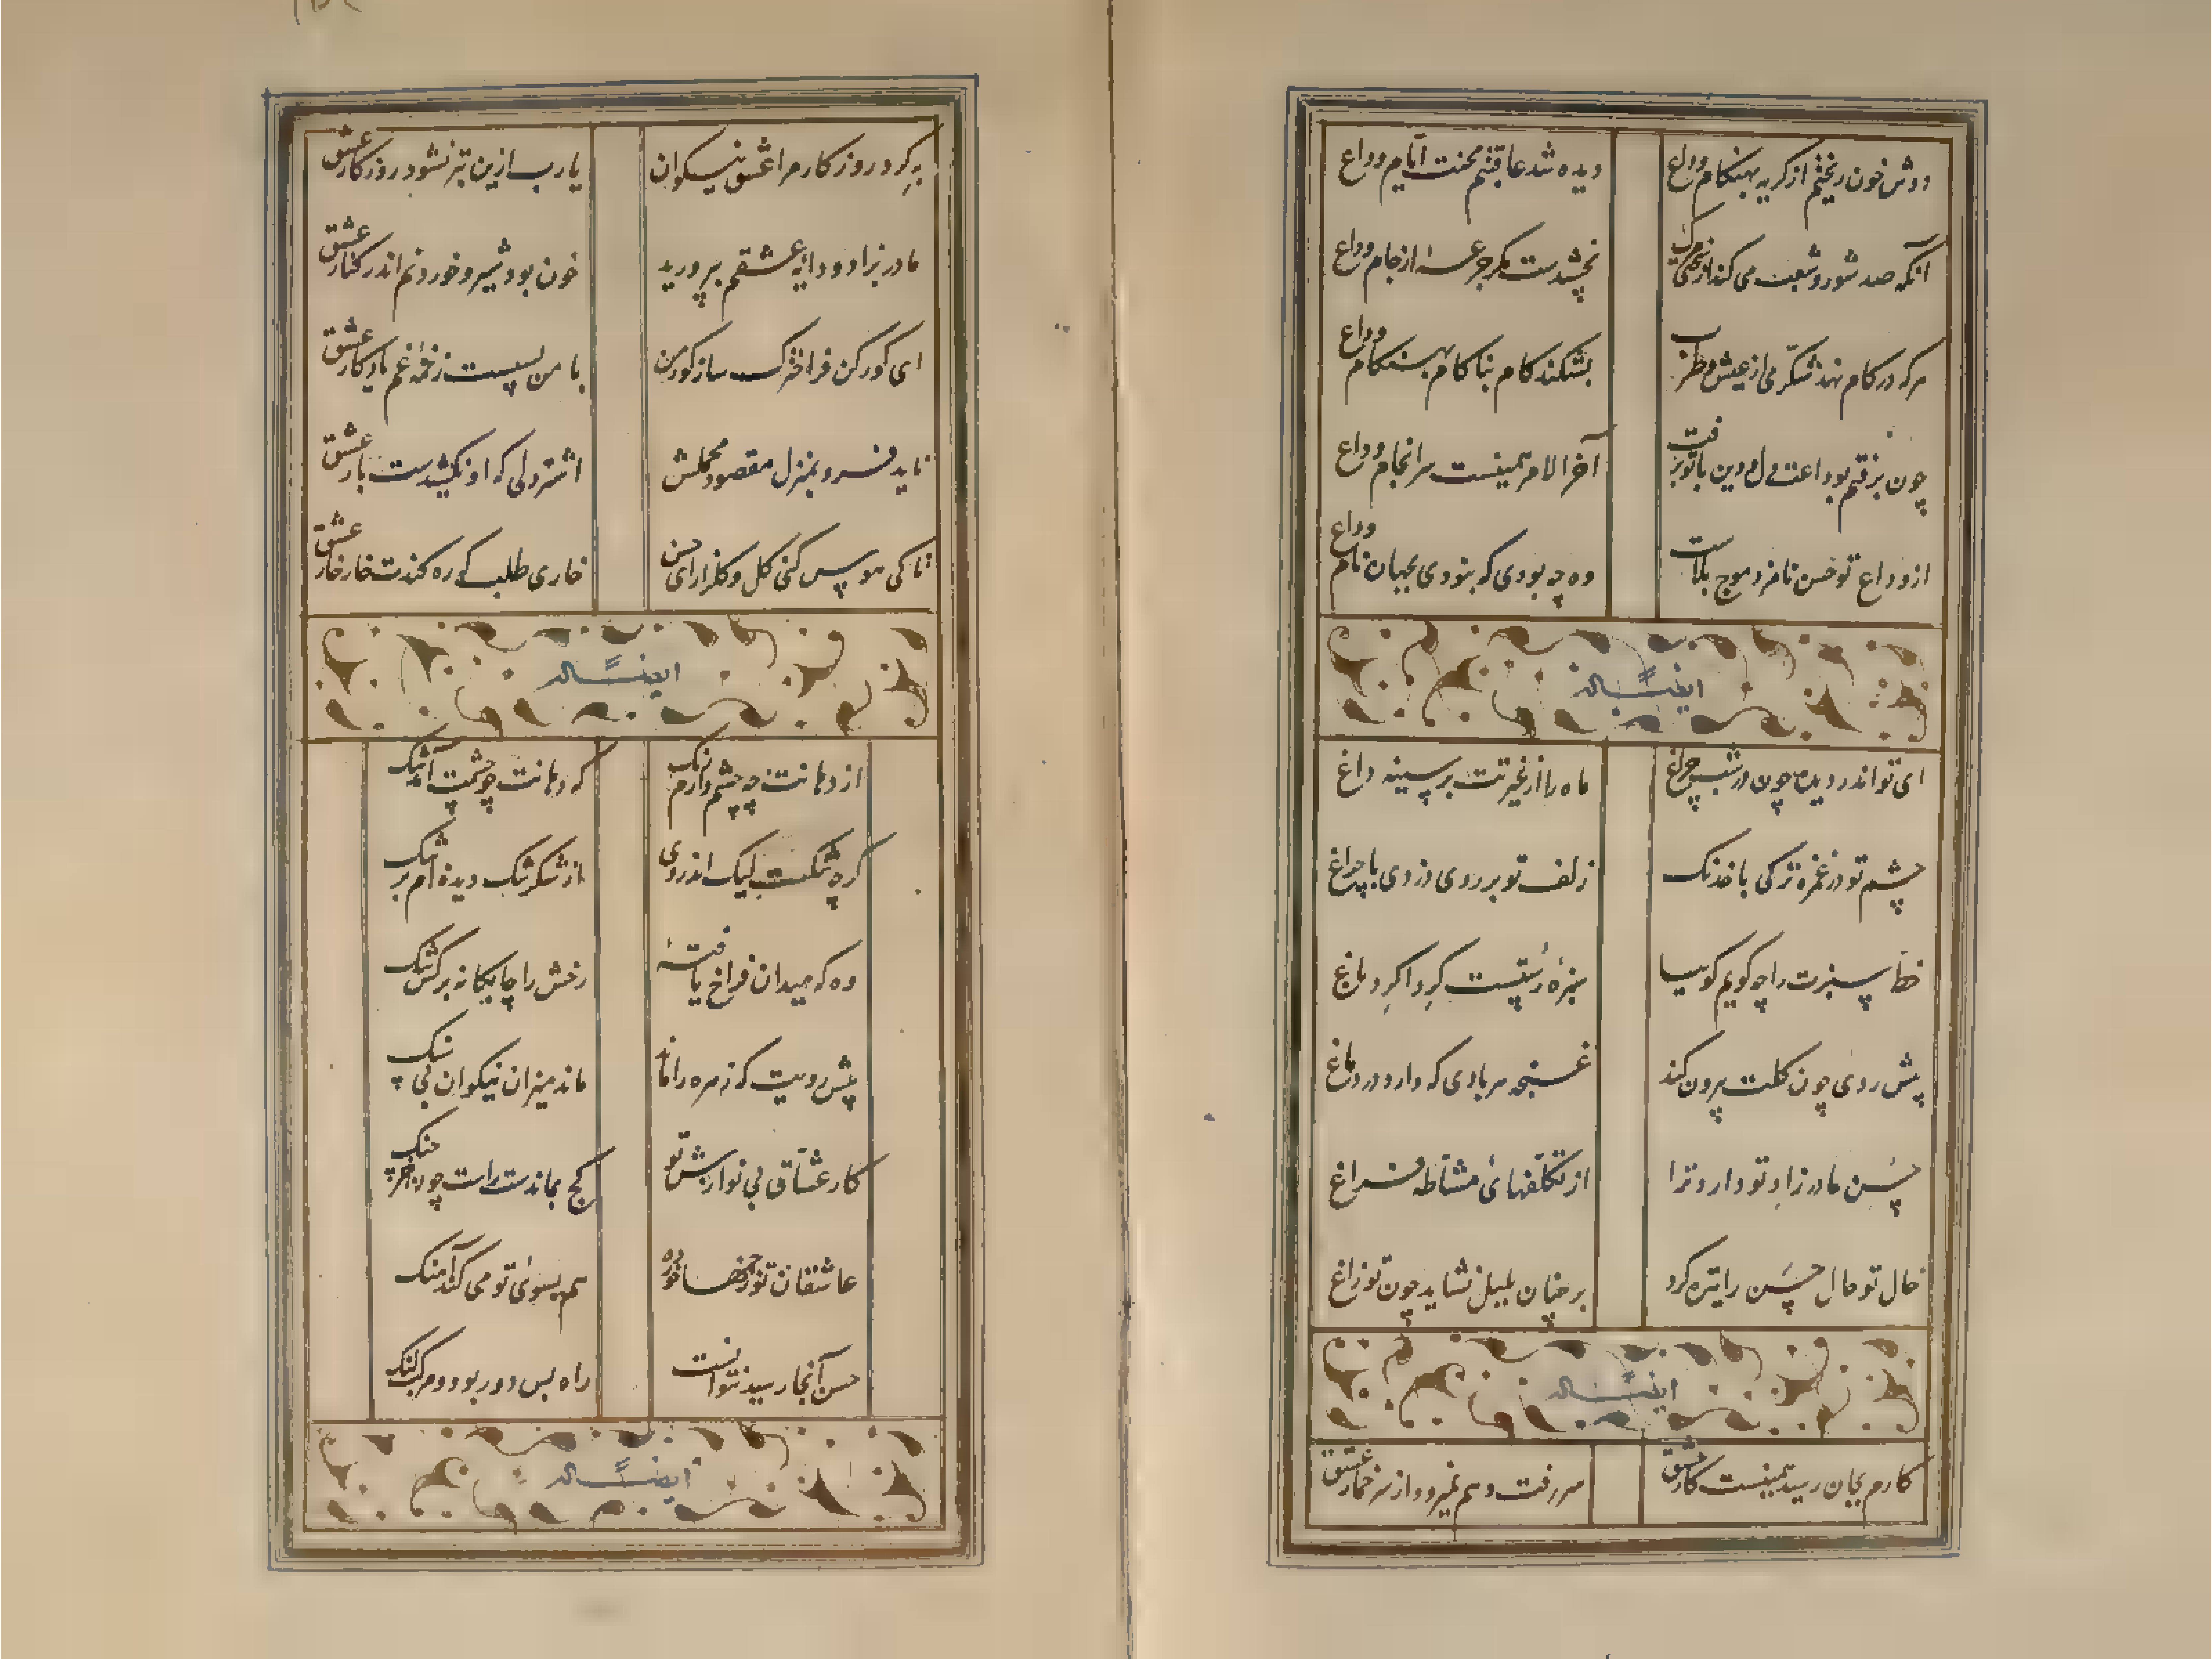 دوش خون ریختم از کریه بهنکام وداع دیده شد عاقبتم محنت ایام وداع
آنکه صد شور و شعب می کند از نچشدست مکر جرعهٔ از جام وداع
هرکه در کام نهد شکّر می از عیش و طرب بشکند کام بناکام بهنکام وداع
چون برفتم بوداعت دل و دین با تو برفت آخر الامر همینست سرانجام وداع
از وداع تو حسن نامزد موج بلاست وه چه بودی که نبودی بجهان نام وداع
ایضاً له
ای تو اندر دیده چون در شب چراغ ماه را از غیرتت بر سینه داغ
چشم تو در غمزه ترکی با خدنک زلف تو بر روی دزدی با چراغ
خط سبزت را چه کویم کوییا سبزه رستست کرداکرد باغ
پیش روی چون کلت بیرون کند غنچه هر بادی که دارد در دماغ
حسن مادرزاد تو دارد ترا از تکلفهای مشاطه فراغ
خال تو حال حسن را تیره کرد بر چنان بلبل نشاید چون تو زاغ
ایضاً له
کارم بجان رسید همینست کار عشق سر رفت و هم نمیرود از سر خمار عشق
به کرد روزکار مرا عشق نیکوان یارب ازین بتر نشود روزکار عشق
مادر بزاد و دایهٔ عشقم بپرورید خون بود شیر و خوردنم اندر کنار عشق
ای کورکن فراخترک ساز کور من با من بسیست زخمهٔ غم یادکار عشق
ناید فرو بمنزل مقصود محملش اشتر دلی که او نکشیدست بار عشق
تا کی هوس کنی کل و کلزار ای حسن خاری طلب که ره کندت خار خار عشق
ایضاً له
از دهانت چه چشم دارم که دهانت چو چشمت آمد تنک
کرچه تنکست لیک اندر وی از شکر تنک دیده ام بر تنک
وه که میدان فراخ یافتهٔ رخش را چابکانه برکش تنک
پیش رویت که زهره را ماند ماند میزان نیکوان بی سنک
کار عشاق بی نوازش تو کج بماندست راست چون خر چنک
عاشقان تو زخمها خورده هم بسوی تو می کنند آهنک
حسن آنجا رسید نتوانست راه بس دور بود و مرکب لنک
ایضاً له